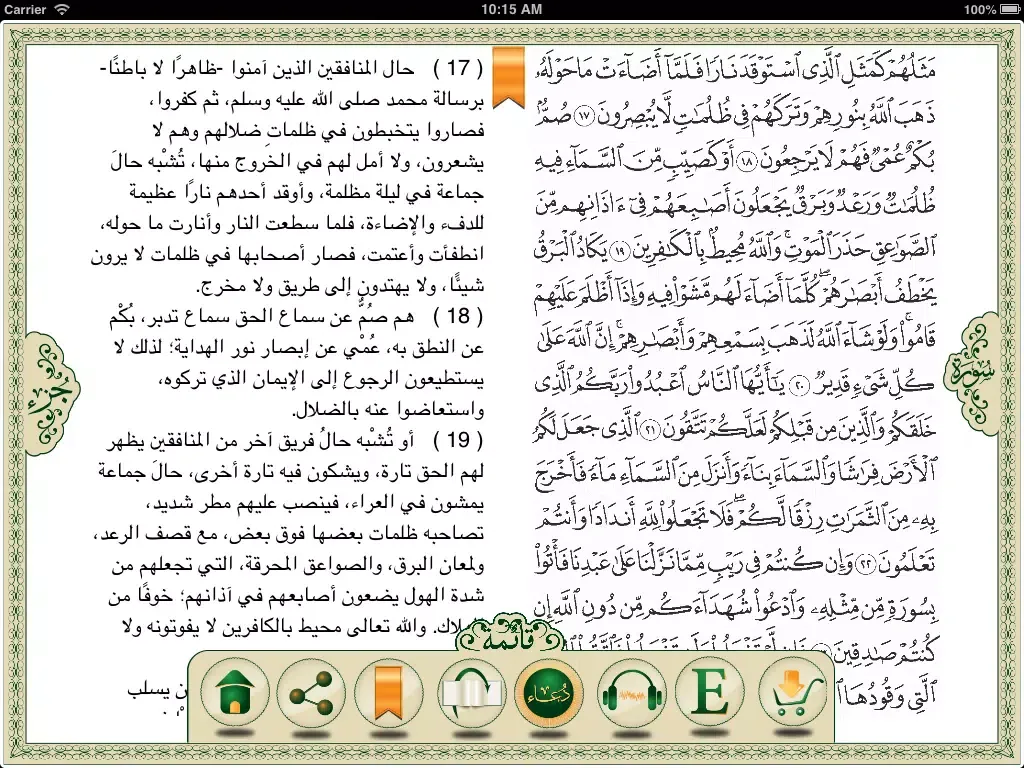 Carrier
10:15 AM
100%
مَثَلُهُمْ كَمَثَلِ ٱلَّذِى ٱسْتَوْقَدَ نَارًا فَلَمَّآ أَضَآءَتْ مَا حَوْلَهُۥ
ذَهَبَ ٱللَّهُ بِنُورِهِمْ وَتَرَكَهُمْ فِى ظُلُمَٰتٍ لَّا يُبْصِرُونَ ١٧ صُمٌّۢ
بُكْمٌ عُمْىٌ فَهُمْ لَا يَرْجِعُونَ ١٨ أَوْ كَصَيِّبٍ مِّنَ ٱلسَّمَآءِ فِيهِ
ظُلُمَٰتٌ وَرَعْدٌ وَبَرْقٌ يَجْعَلُونَ أَصَٰبِعَهُمْ فِىٓ ءَاذَانِهِم مِّنَ
ٱلصَّوَٰعِقِ حَذَرَ ٱلْمَوْتِ ۚ وَٱللَّهُ مُحِيطٌۢ بِٱلْكَٰفِرِينَ ١٩ يَكَادُ ٱلْبَرْقُ
يَخْطَفُ أَبْصَٰرَهُمْ ۖ كُلَّمَآ أَضَآءَ لَهُم مَّشَوْا۟ فِيهِ وَإِذَآ أَظْلَمَ عَلَيْهِمْ
قَامُوا۟ ۚ وَلَوْ شَآءَ ٱللَّهُ لَذَهَبَ بِسَمْعِهِمْ وَأَبْصَٰرِهِمْ ۚ إِنَّ ٱللَّهَ عَلَىٰ
كُلِّ شَىْءٍ قَدِيرٌ ٢٠ يَٰٓأَيُّهَا ٱلنَّاسُ ٱعْبُدُوا۟ رَبَّكُمُ ٱلَّذِى
خَلَقَكُمْ وَٱلَّذِينَ مِن قَبْلِكُمْ لَعَلَّكُمْ تَتَّقُونَ ٢١ ٱلَّذِى جَعَلَ لَكُمُ
ٱلْأَرْضَ فِرَٰشًا وَٱلسَّمَآءَ بِنَآءً وَأَنزَلَ مِنَ ٱلسَّمَآءِ مَآءً فَأَخْرَجَ
بِهِۦ مِنَ ٱلثَّمَرَٰتِ رِزْقًا لَّكُمْ ۖ فَلَا تَجْعَلُوا۟ لِلَّهِ أَندَادًا وَأَنتُمْ
تَعْلَمُونَ ٢٢ وَإِن كُنتُمْ فِى رَيْبٍ مِّمَّا نَزَّلْنَا عَلَىٰ عَبْدِنَا فَأْتُوا۟
بِسُورَةٍ مِّن مِّثْلِهِۦ وَٱدْعُوا۟ شُهَدَآءَكُم مِّن دُونِ ٱللَّهِ إِن
كُنتُمْ صَٰدِقِينَ
ٱلَّتِى وَقُودُهَا
( 17 ) حال المنافقين الذين آمنوا -ظاهرًا لا باطنًا-
برسالة محمد صلى الله عليه وسلم، ثم كفروا،
فصاروا يتخبطون في ظلماتِ ضلالهم وهم لا
يشعرون، ولا أمل لهم في الخروج منها، تُشْبه حالَ
جماعة في ليلة مظلمة، وأوقد أحدهم نارًا عظيمة
للدفء والإضاءة، فلما سطعت النار وأنارت ما حوله،
انطفأت وأعتمت، فصار أصحابها في ظلمات لا يرون
شيئًا، ولا يهتدون إلى طريق ولا مخرج.
( 18 ) هم صُمٌّ عن سماع الحق سماع تدبر، بُكْم
عن النطق به، عُمْي عن إبصار نور الهداية؛ لذلك لا
يستطيعون الرجوع إلى الإيمان الذي تركوه،
واستعاضوا عنه بالضلال.
( 19 ) أو تُشْبه حالُ فريق آخر من المنافقين يظهر
لهم الحق تارة، ويشكون فيه تارة أخرى، حالَ جماعة
يمشون في العراء، فينصب عليهم مطر شديد،
تصاحبه ظلمات بعضها فوق بعض، مع قصف الرعد،
ولمعان البرق، والصواعق المحرقة، التي تجعلهم من
شدة الهول يضعون أصابعهم في آذانهم؛ خوفًا من
والله تعالى محيط بالكافرين لا يفوتونه ولا
يسلب
سورة
جزء
قائمة
دعاء
E